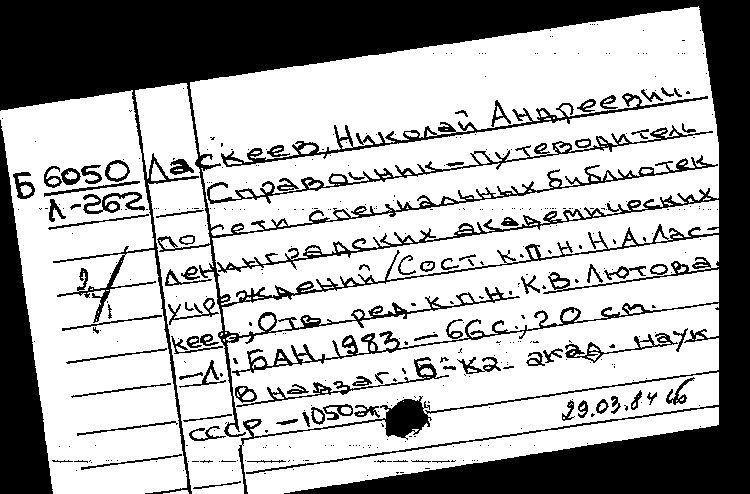 Ласкеев, Николай Андреевич.
Б 6050
Л-262
Справочник-путеводитель
по сети специальных библиотек
ленинградских академических
учреждений / Сост. к.п.н. Н.А. Лас-
кеев; Отв. ред. к.п.н. К.В. Лютова.
– Л.: БАН, 1983. – 66 с.; 20 см.
В надзаг.: Б-ка акад. наук
СССР. – 1050 эк
29.03.84